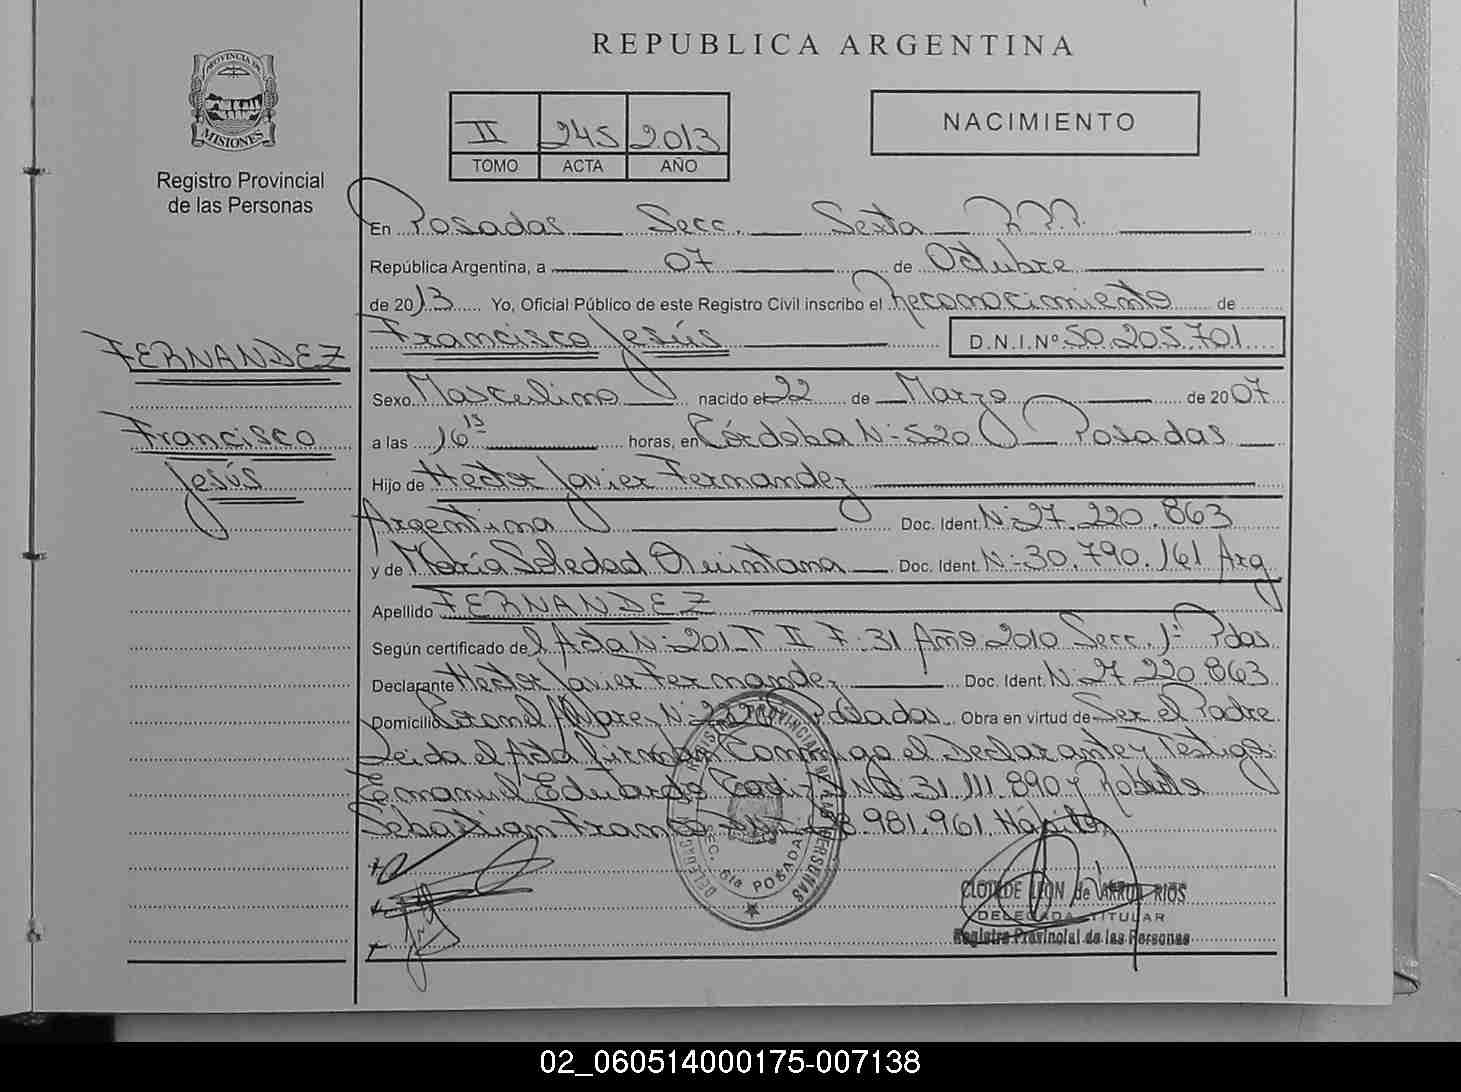 REPUBLICA ARGENTINA
PROVINCIA DE
MISIONES
Registro Provincial
de las Personas
II 245 2013
TOMO ACTA AÑO
NACIMIENTO
En Posadas Secc. Sexta R.P.P.
República Argentina, a 07 de Octubre
de 2013 Yo, Oficial Público de este Registro Civil inscribo el Reconocimiento de
Francisco Jesús D.N.I.Nº 50.205.701
FERNANDEZ
Francisco
Jesús
Sexo Masculino nacido el 22 de Marzo de 2007
a las 16 15 horas, en Córdoba Nº 520 Posadas
Hijo de Héctor Javier Fernandez
Argentina Doc. Ident. Nº 27.220.863
y de María Soledad Quintana Doc. Ident. Nº 30.790.161 Arg
Apellido FERNANDEZ
Según certificado del Acta Nº 201 T II F. 31 Año 2010 Secc. 1ª Pdas
Declarante Héctor Javier Fernandez Doc. Ident. Nº 27.220.863
Domicilio Posadas Obra en virtud de Ser el Padre
Leida el Acta firman Conmigo el Declarante y Testigos
Emanuel Eduardo 31.111.890 y
Sebastian 981.961
REGISTRO PROVINCIAL DE LAS PERSONAS
SEC. 6ta POSADAS
CLOTILDE LEON de ARRUA RIOS
DELEGADA TITULAR
Registro Provincial de las Personas
02_060514000175-007138